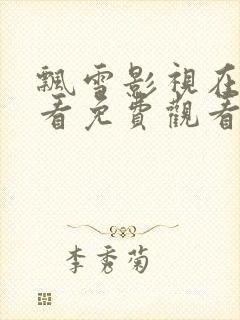 飄雪影視在
看免費觀看
李秀菊